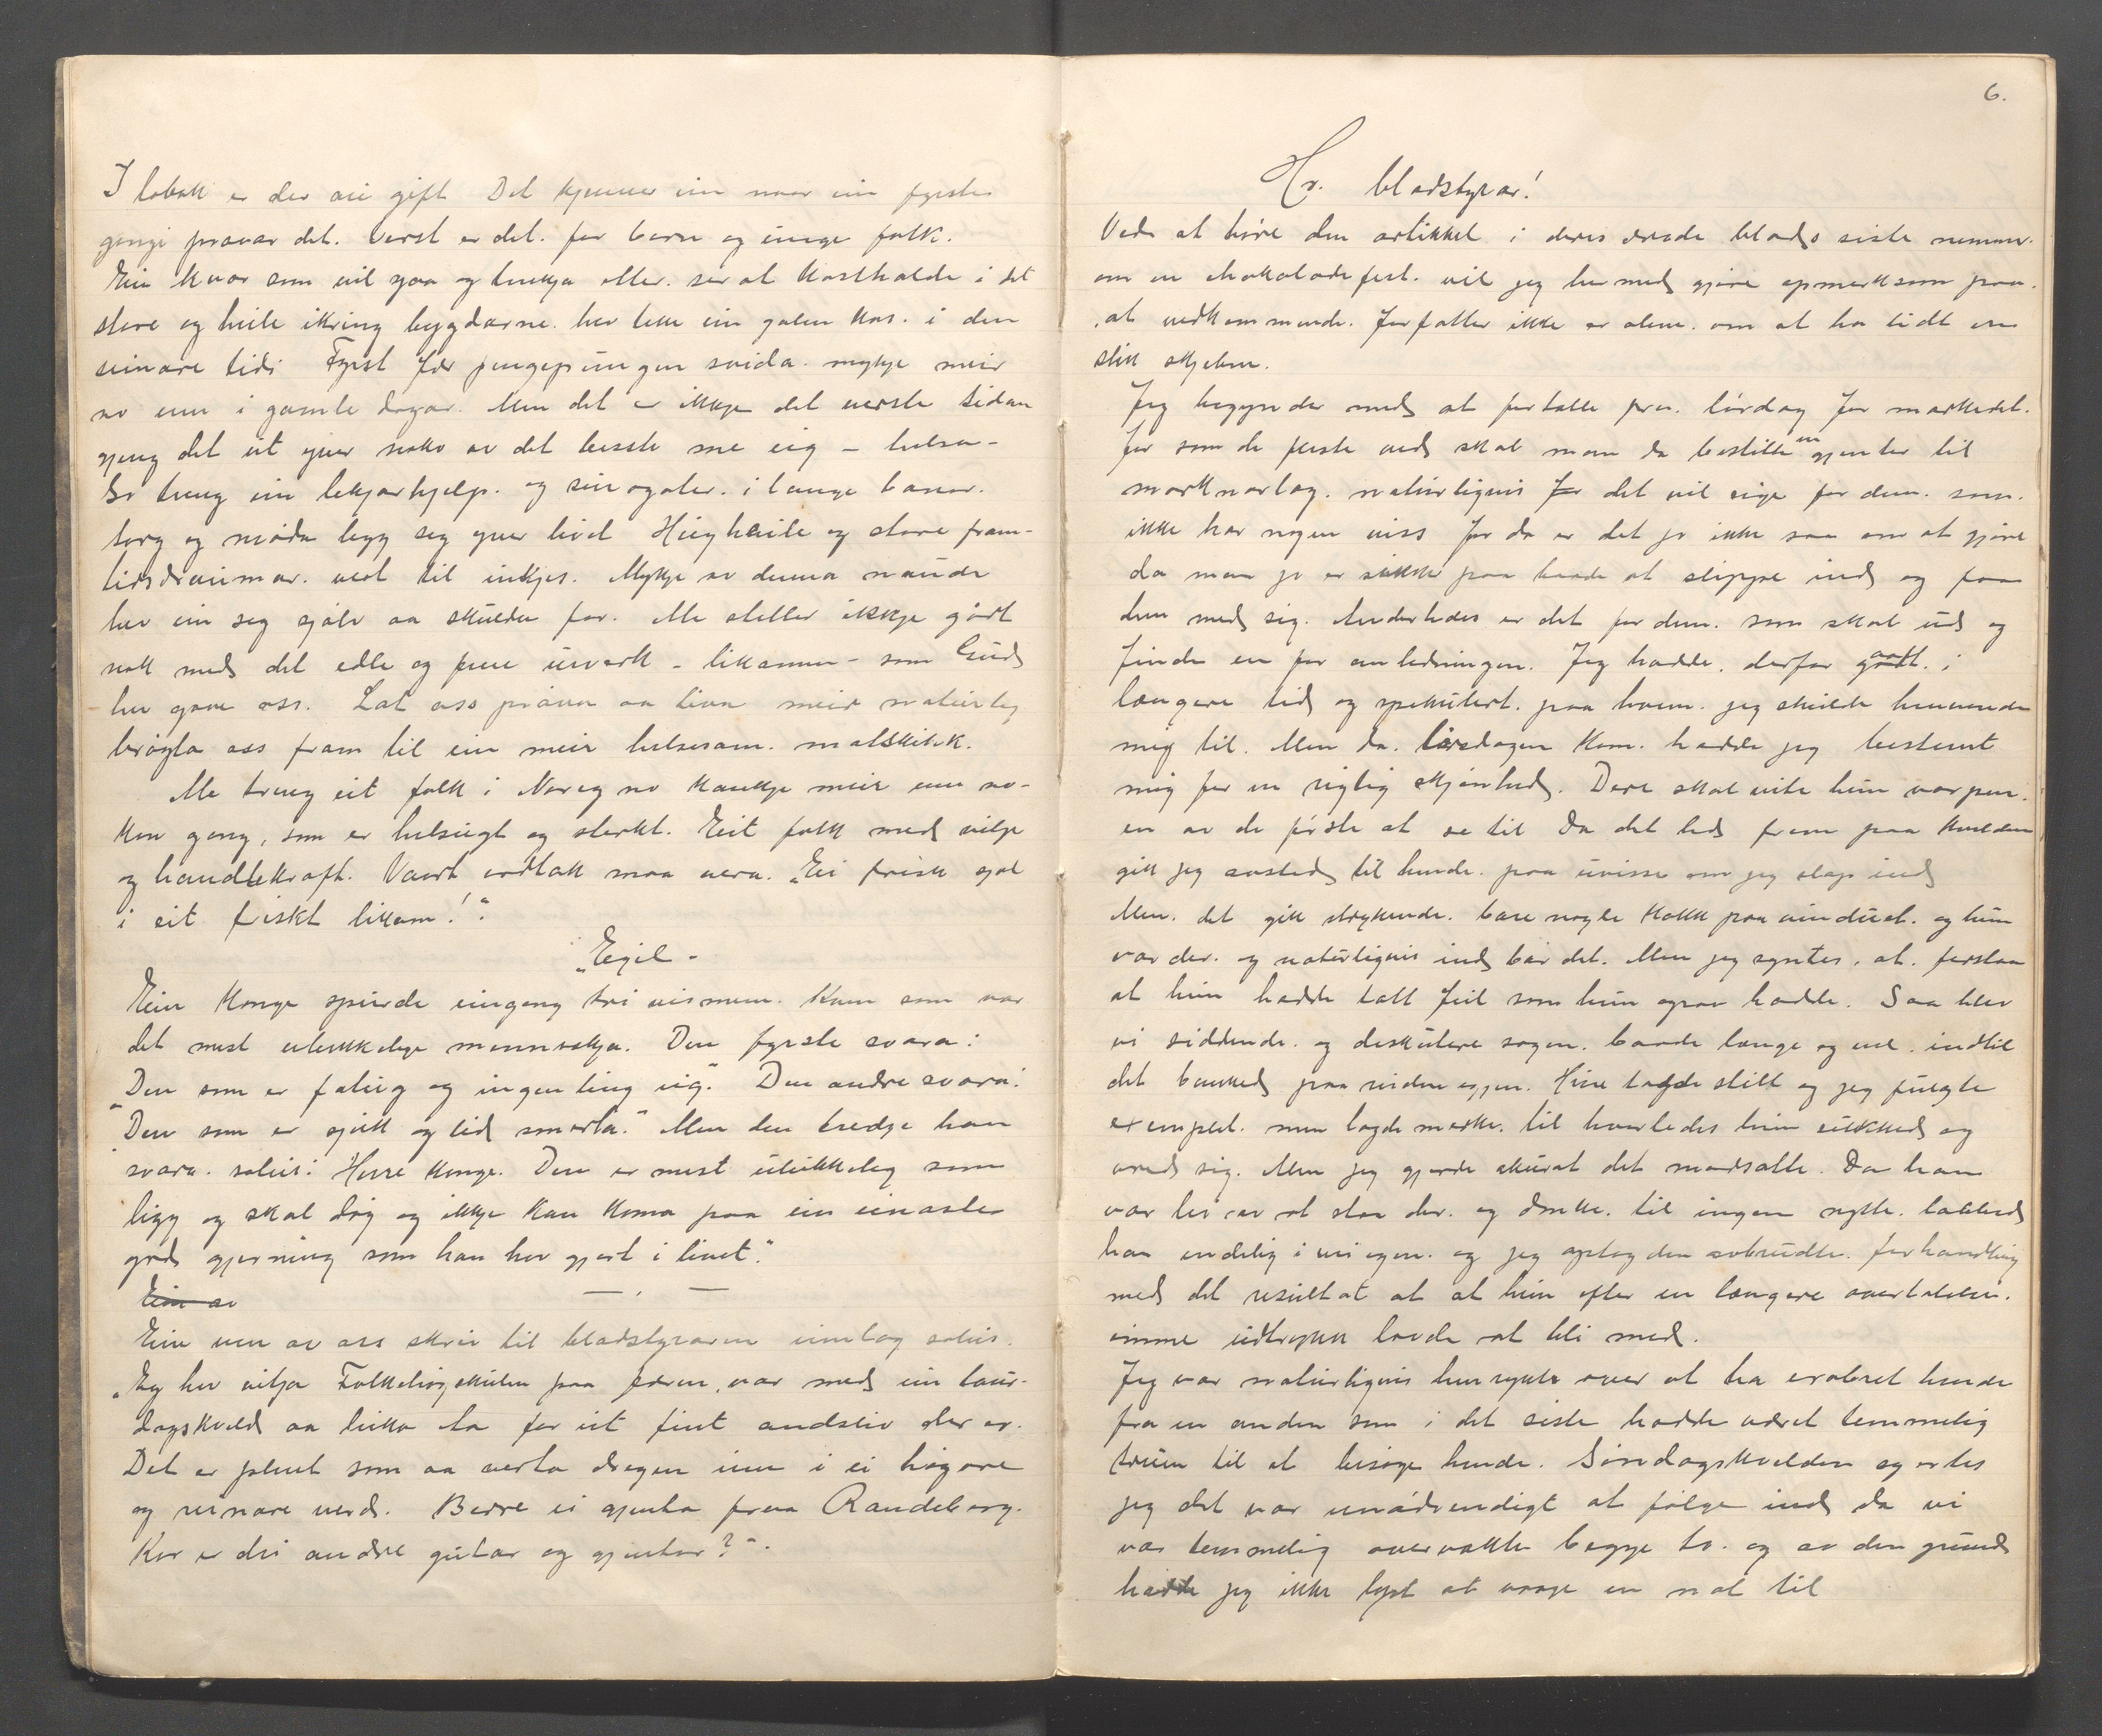 I tobakk er der ei gift Det kjenner ein naar ein fyrste
gongi prøvar det. Verst er det for born og unge folk.
Ein kvar som vil gaa og tenkja etter. ser at kosthalde i det
store og heile ikring bygdarne. hev teke ein galen kos. i den
seinare tidi Fyrst fær pengepungen svida. mykje meir
no enn i gamle dagar. Men det er ikkje det verste sidan
gjeng det ut yver noko av det beste me eig – helsa –
So treng ein lekjarhjelp. og sin ogater. i lange banor.
Sorg og møda legg seg yver livet Hugheile og store fram-
tidsdraumar. vert til inkjes. Mykje av denna naude
hev ein seg sjølv aa skulda for. Me steller ikkje godt
nok med det edle og fine urverk – likamen – som Gud
hev gjeve oss. Lat oss prøva aa leva meir naturleg
brøyta oss fram til ein meir helsesam. matskikk.
Me treng eit folk i Noreg no kankje meir enn no-
kon gong, som er helsugt og sterkt. Eit folk med vilje
og handlekraft. Vaart ordtak maa vera. „Ei frisk sjel
i eit friskt likam!“.
„Egil –
Ein konge spurde eingong tri vismenn. Kven som var
det mest ulukkelege menneskja. Den fyrste svara:
„Den som er fatig og ingen ting eig“. Den andre svara:
„Den som er sjuk og lid smerta.“ Men den tredje han
svara. soleis: Herre konge. Den er mest ulukkeleg som
ligg og skal døy og ikkje kan koma paa ein einaste
god gjerning som han hev gjort i livet“.
Ein av
Ein ven av oss skriv til bladstyraren innlag soleis.
„Eg hev vitja Folkehøgskulen paa Jæren, var med ein laur-
dagskveld aa lika ta for eit fint andsliv der er.
Det er plent som aa verta dregen inn i ei høgare
og reinare verd. Berre ei gjenta fraa Randeberg.
Kor er dei andre gutar og gjentor?“.
6.
Hr. bladstyrar!
Ved at høre den artikkel i deres ærede blads siste nummer.
om en chokoladefest. vil jeg hermed gjøre opmerksom paa.
at vedkommende. forfatter ikke er alene. om at ha lidt en
slik skjebne.
Jeg begynder med at fortælle fra. lørdag før markedet.
for som de fleste ved skal man da bestille en gjenter til
marknarlag. naturligvis for det vil sige for dem. som.
ikke har nogen viss for da er det jo ikke saa om at gjøre
da man jo er sikker paa baade at slippe ind og faa
dem med sig. Anderledes er det for dem. som skal ud og
finde en for anledningen. Jeg hadde. derfor gaatt. i
længere tid og spekulert. paa hvem. jeg skulde henvende
mig til. Men da. lørdagen kom. hadde jeg bestemt
mig for en rigtig skjønhed. Dere skal vite hun var pen.
en av de første at se til Da det led frem paa kvelden
gik jeg avsted til hende. paa uvisse om jeg slap ind
Men. det gik strykende. bare nogle kakk paa vinduet. og hun
var der. og naturligvis ind bar det. Men jeg syntes. at. forstaa
at hun hadde tatt feil som hun ogsaa hadde. Saa blev
vi siddende. og deskutere sagen. baade længe og vel. indtil
det banked paa vinduet igjen. Hun tagde still og jeg fulgte
exemplet. men lagde merke. til hvorledes hun sukked og
vred sig. Men jeg gjorde akurat det modsatte. Da han
var lei av at staa der. og dunke. til ingen nytte. labbed
han endelig i vei igjen. og jeg optog den avbrudte. forhandling
med det resultat at at hun efter en længere overtalelse.
 udtrykk lovde at bli med.
Jeg var naturligvis henrykt over at ha erobret hende
fra en anden som i det siste hadde været temmelig
truen til at besøge hende. Søndagskvelden syntes
jeg det var unødvendigt at følge ind da vi
var temmelig overvakte begge to. og av den grund
hadde jeg ikke lyst at vaage en nat til